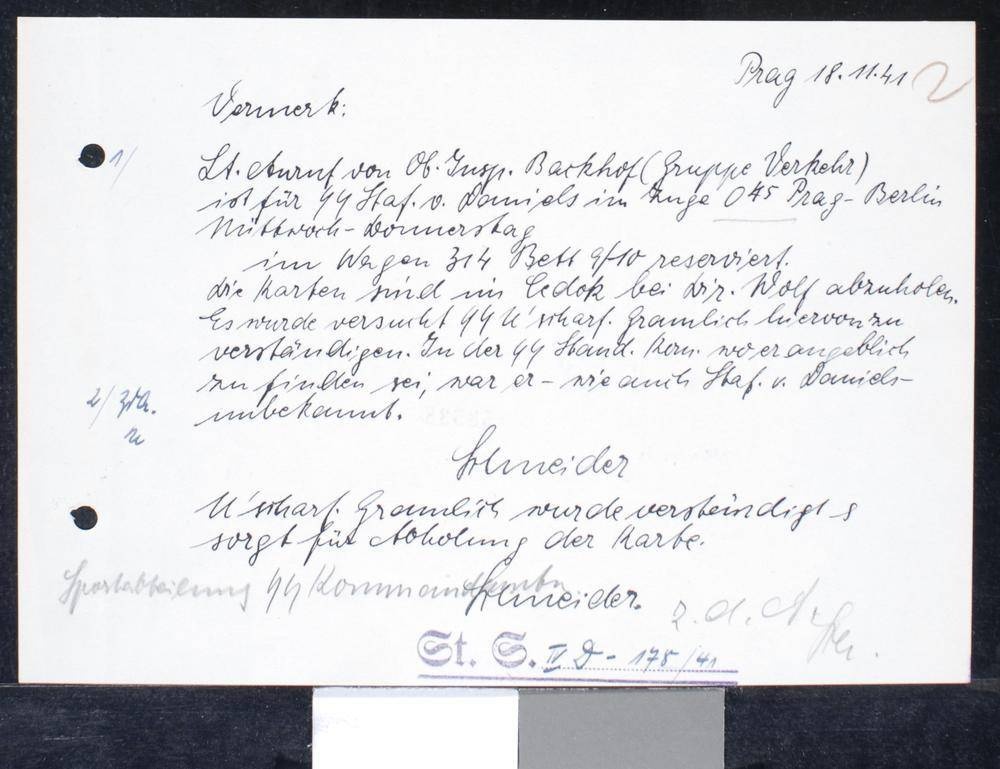 Prag 18.11.41
2
Vermerk:
1/
Lt. Anruf von Ob. Insp. Backhof (Gruppe Verkehr)
ist für SS Staf. v. Daniels im Zuge D 45 Prag - Berlin
Mittwoch - Donnerstag
im Wagen 314 Bett 9/10 reserviert.
Die Karten sind im Cedok bei Dir. Wolf abzuholen.
Es wurde versucht SS U'scharf. Gramlich hiervon zu
verständigen. In der SS Stand. Kom. wo er angeblich
zu finden sei, war er - wie auch Staf. v. Daniels -
2/ ZdA.
unbekannt.
Schneider
U'scharf. Gramlich wurde verständigt &
sorgt für Abholung der Karte.
Sportabteilung SS Kommandantur
Schneider.
z. d. A.
St. S. IV D - 178/41